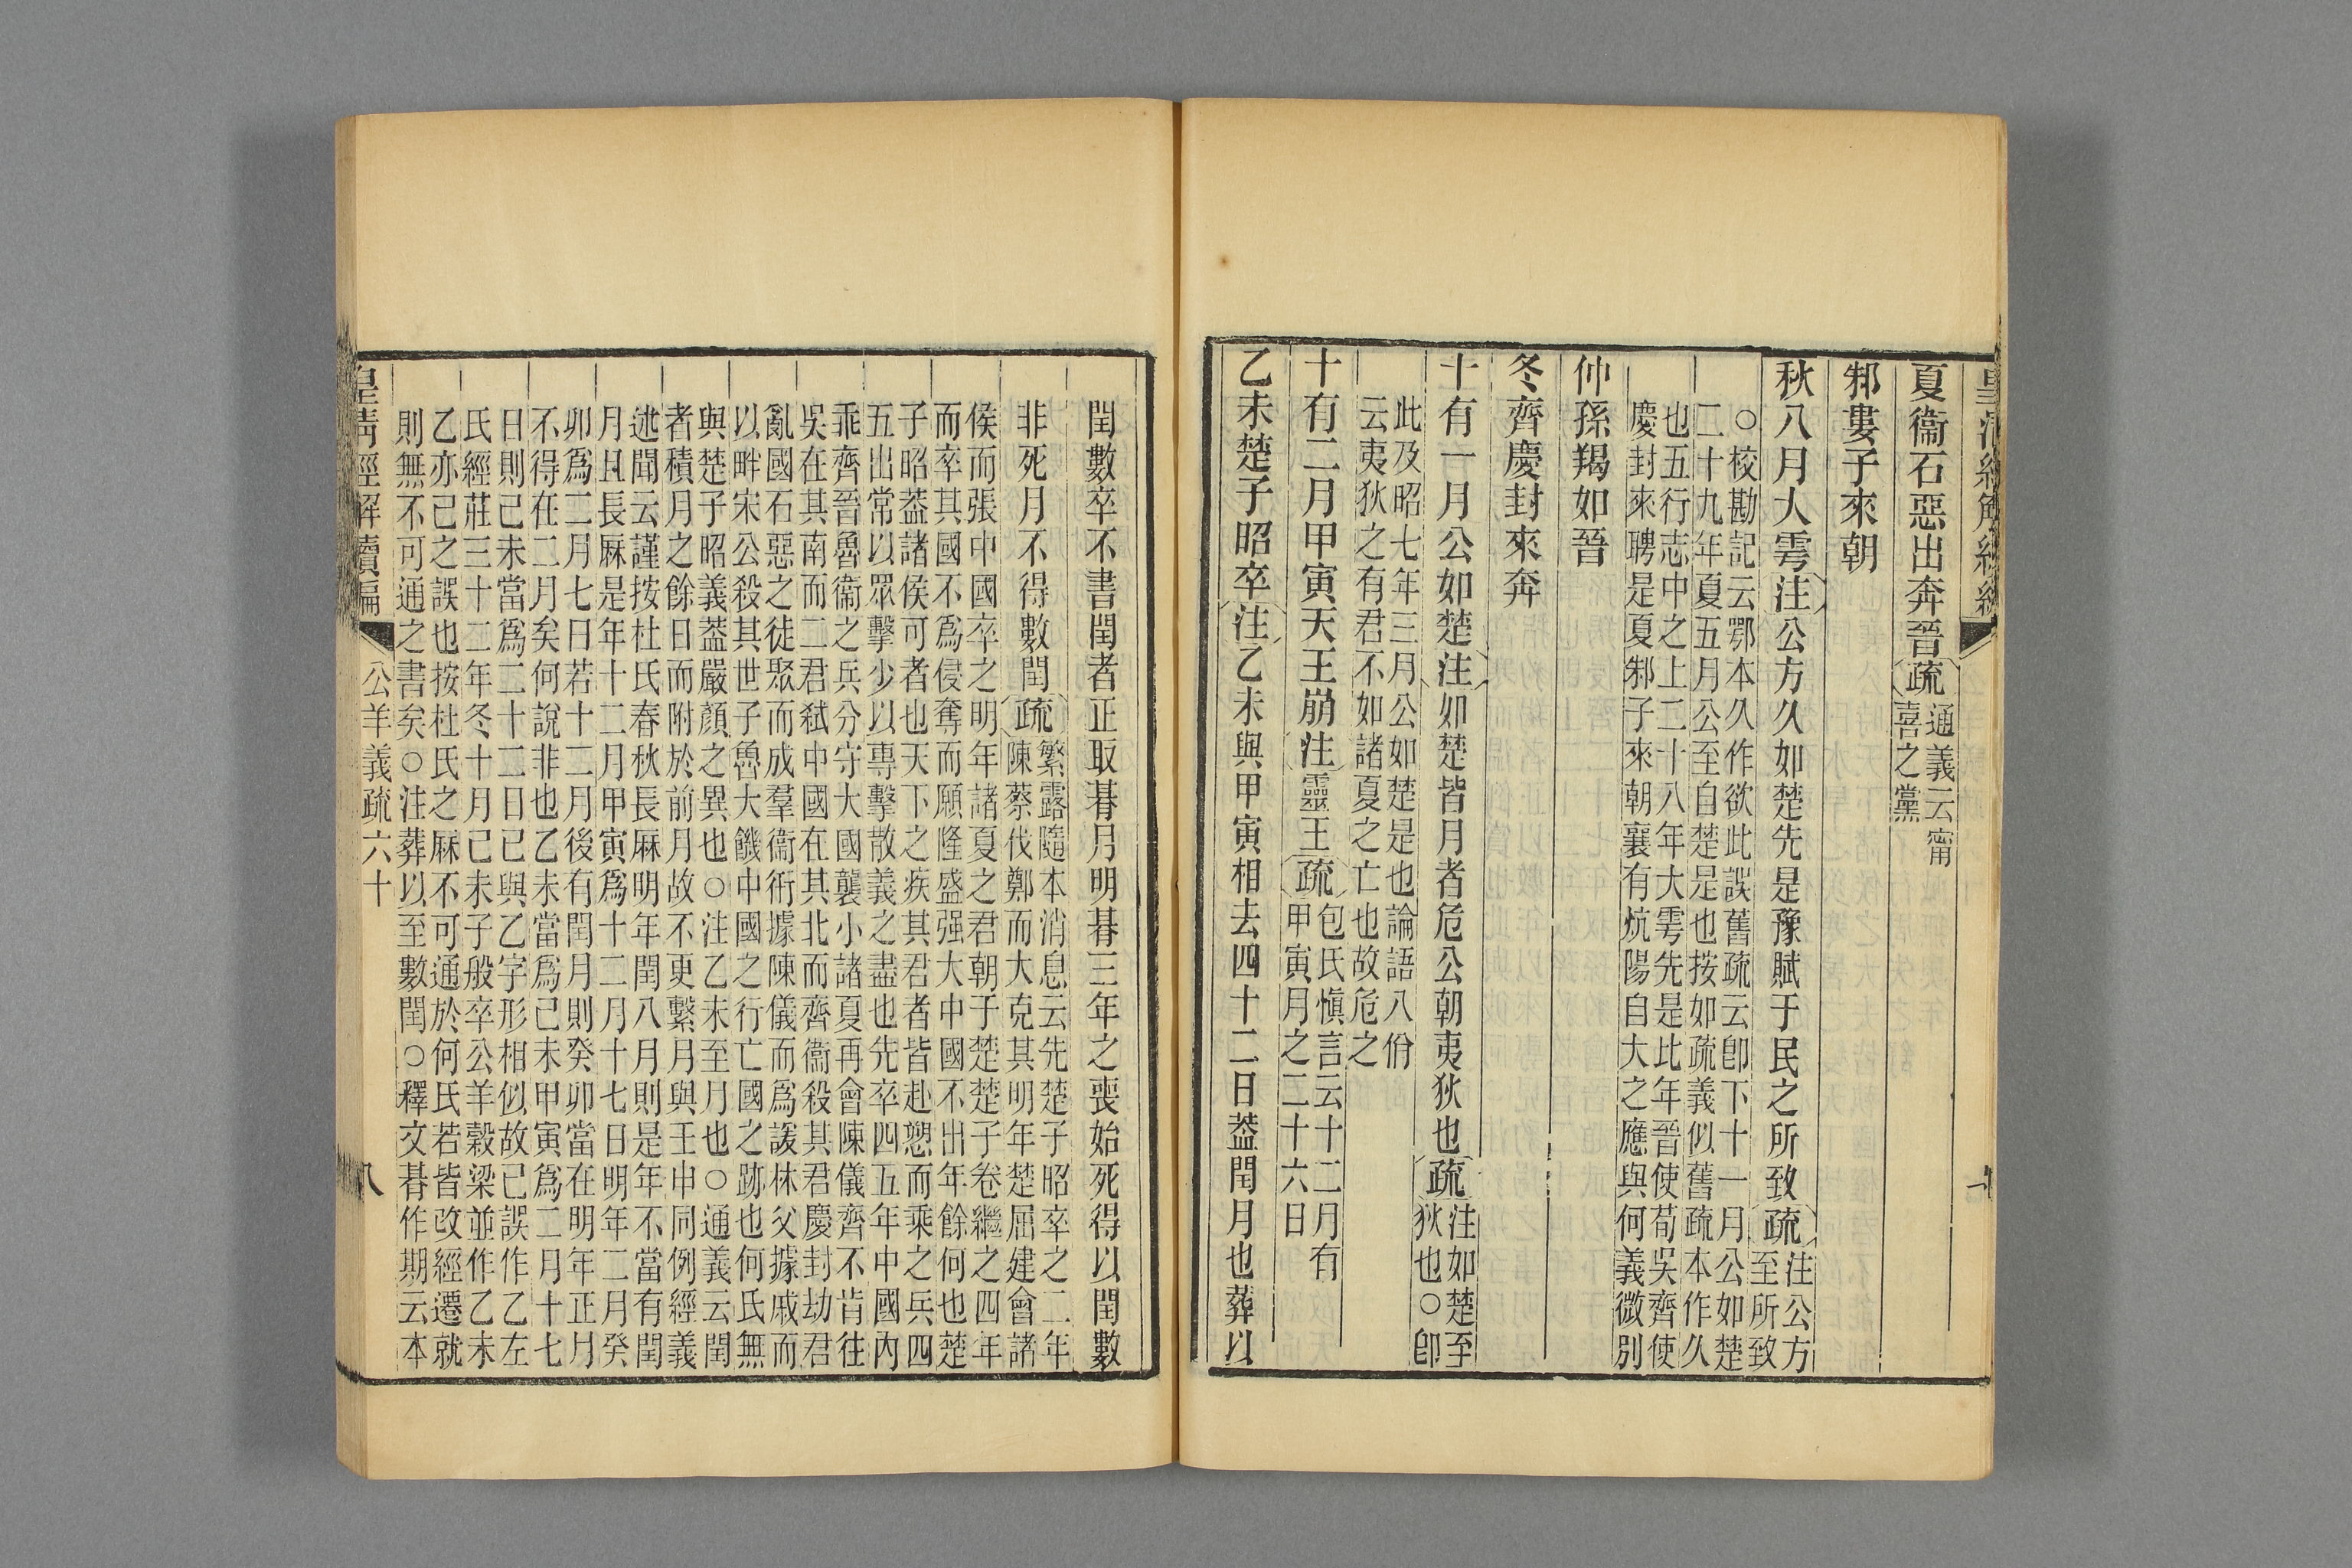 夏衞石惡出奔晉疏通義云甯
喜之黨
邾婁子來朝
秋八月大雩注公方久如楚先是豫賦于民之所致疏注公方
至所致
○校勘記云鄂本久作欲此誤舊疏云卽下十一月公如楚
二十九年夏五月公至自楚是也按如疏義似舊疏本作久
也五行志中之上二十八年大雩先是比年晉使荀吳齊使
慶封來聘是夏邾子來朝襄有炕陽自大之應與何義微別
仲孫羯如晉
冬齊慶封來奔
十有一月公如楚注如楚皆月者危公朝夷狄也疏注如楚至
狄也○卽
此及昭七年三月公如楚是也論語八佾
云夷狄之有君不如諸夏之亡也故危之
十有二月甲寅天王崩注靈王疏包氏愼言云十二月有
甲寅月之二十六日
乙未楚子昭卒注乙未與甲寅相去四十二日葢閏月也葬以
閏數卒不書閏者正取朞月明朞三年之喪始死得以閏數
非死月不得數閏疏繁露隨本消息云先楚子昭卒之二年
陳蔡伐鄭而大克其明年楚屈建會諸
侯而張中國卒之明年諸夏之君朝于楚楚子卷繼之四年
而卒其國不爲侵奪而願隆盛强大中國不出年餘何也楚
子昭葢諸侯可者也天下之疾其君者皆赴愬而乘之兵四
五出常以眾擊少以專擊散義之盡也先卒四五年中國內
乖齊晉魯衞之兵分守大國襲小諸夏再會陳儀齊不肯往
吳在其南而二君弒中國在其北而齊衞殺其君慶封劫君
亂國石惡之徒聚而成羣衞衎據陳儀而爲諼林父據戚而
以畔宋公殺其世子魯大饑中國之行亡國之跡也何氏無
與楚子昭義葢嚴顏之異也○注乙未至月也○通義云閏
者積月之餘日而附於前月故不更繫月與壬申同例經義
述聞云謹按杜氏春秋長厤明年閏八月則是年不當有閏
月且長厤是年十二月甲寅爲十二月十七日明年二月癸
卯爲二月七日若十二月後有閏月則癸卯當在明年正月
不得在二月矣何說非也乙未當爲已未甲寅爲二月十七
日則己未當爲二十二日已與乙字形相似故已誤作乙左
氏經莊三十二年冬十月己未子般卒公羊穀梁並作乙未
乙亦己之誤也按杜氏之厤不可通於何氏若皆改經遷就
則無不可通之書矣○注葬以至數閏○釋文朞作期云本
皇清經解續編
公羊義疏六十
八